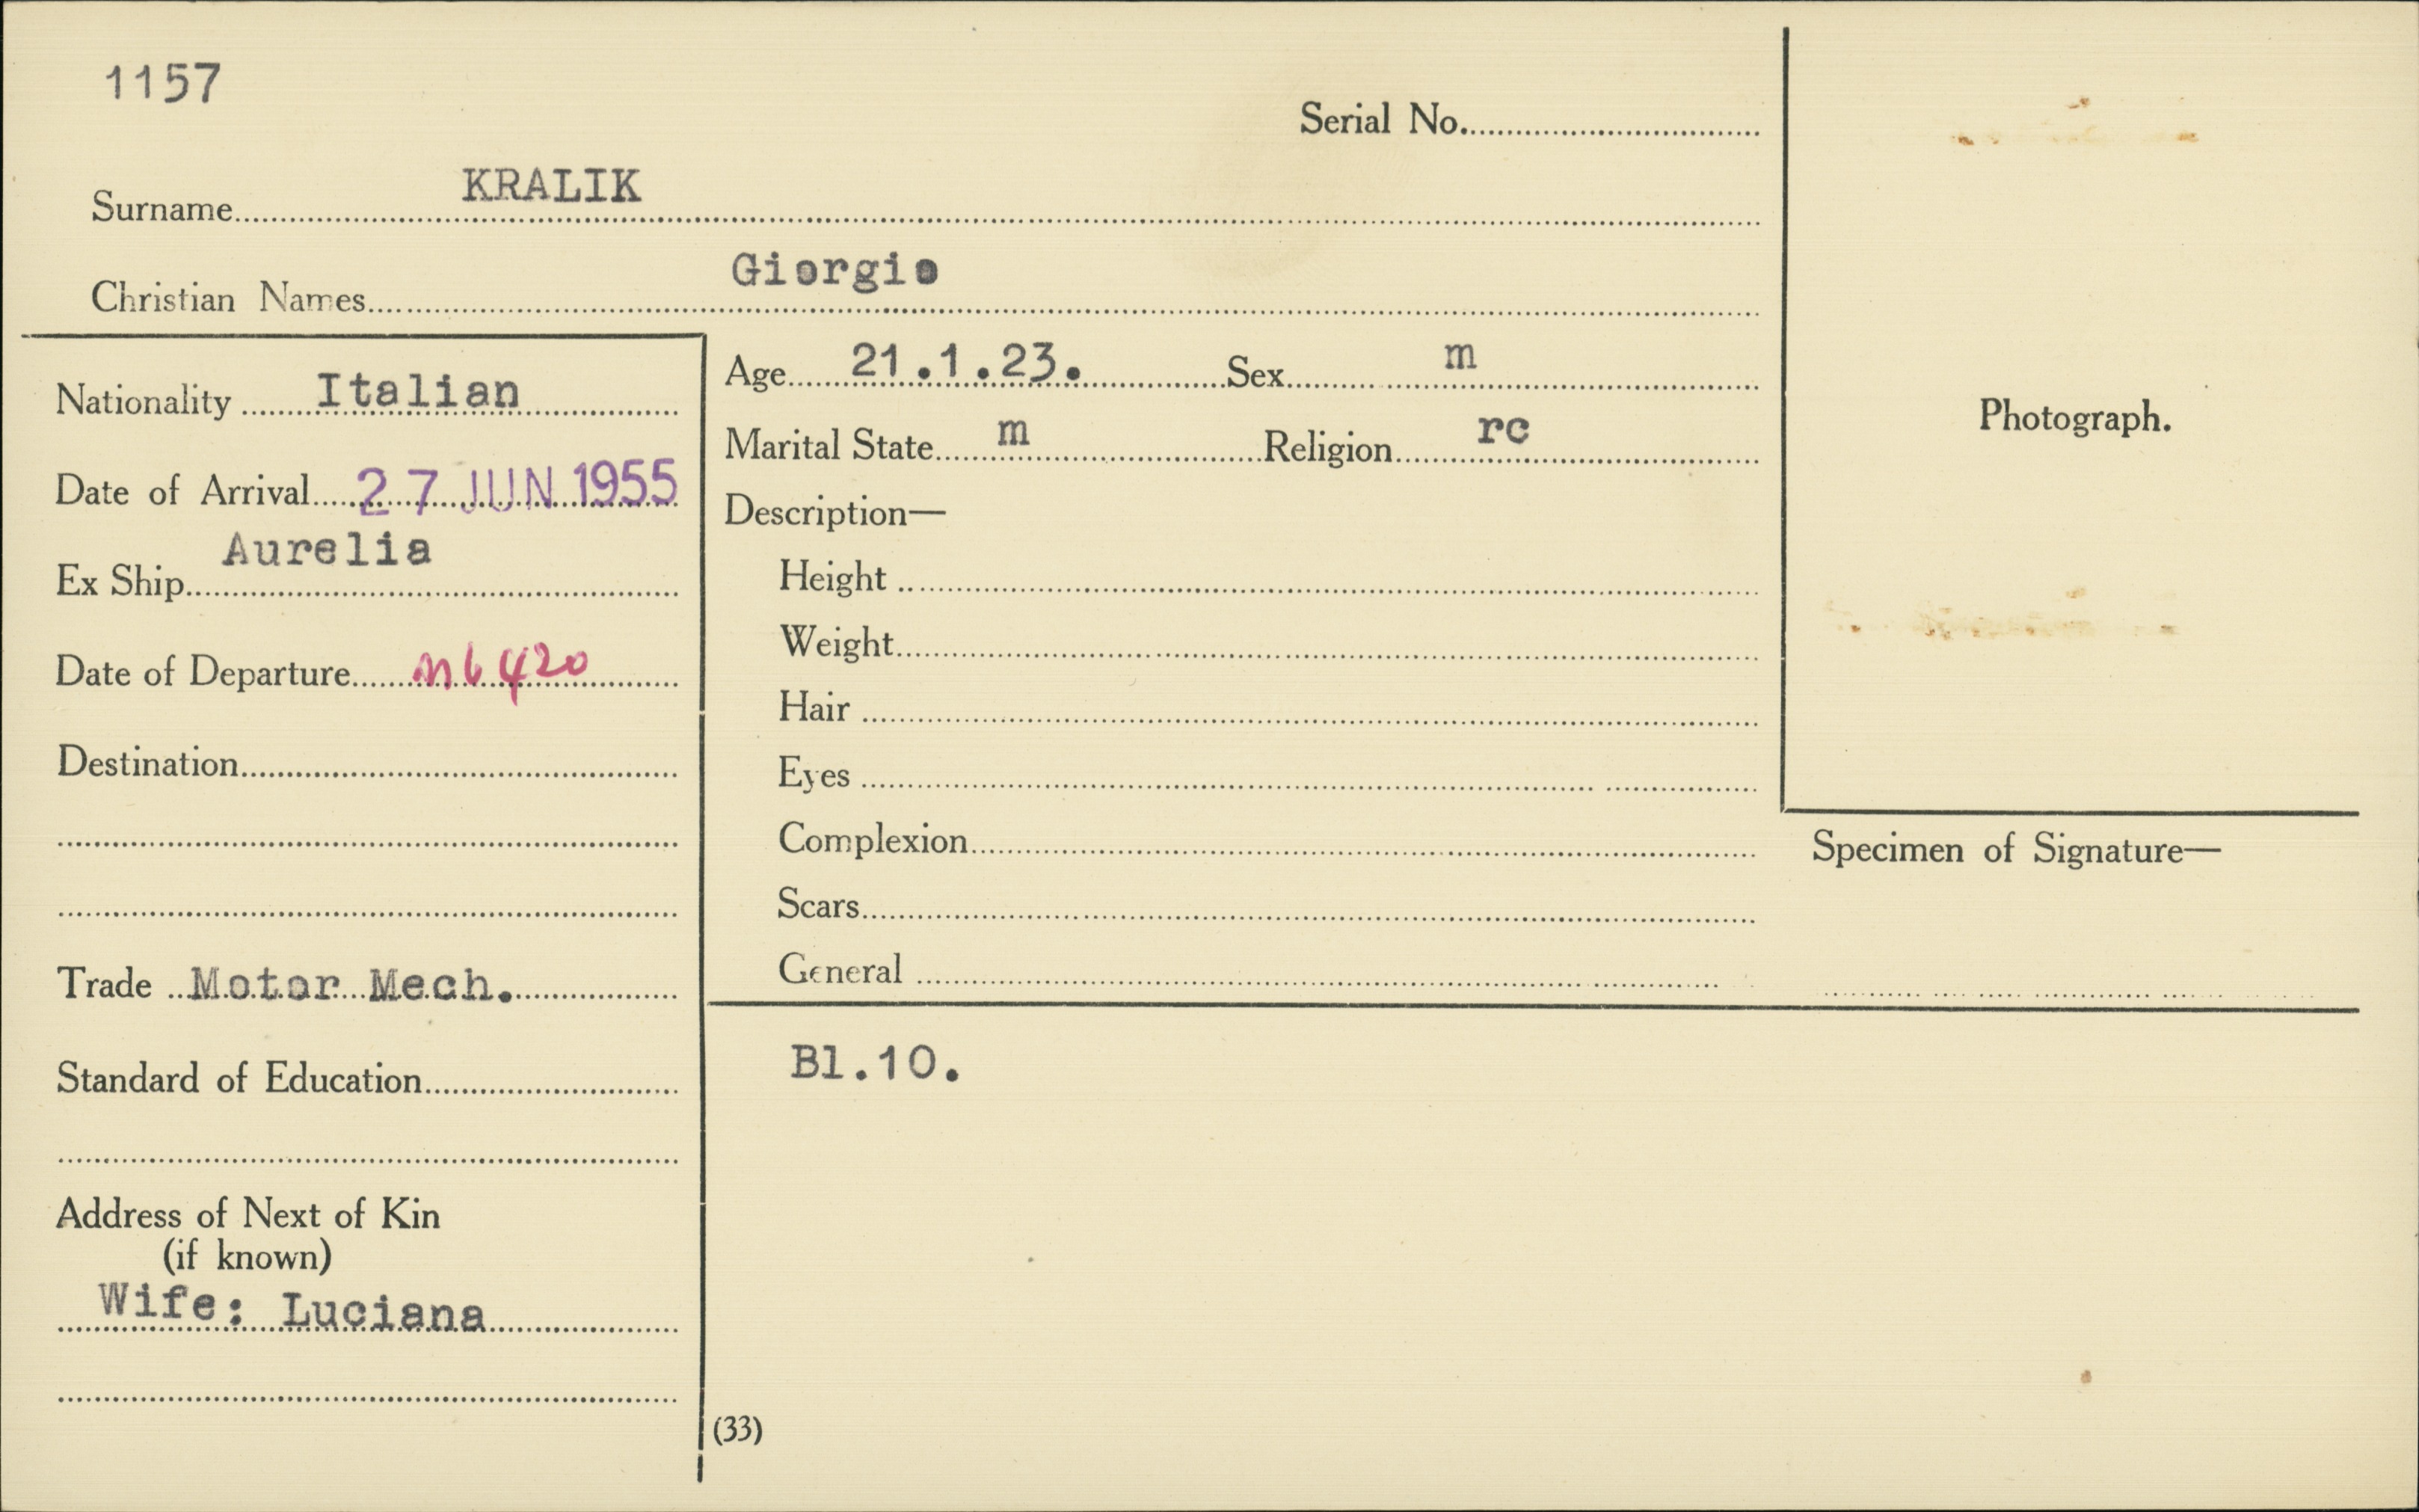 1157
Serial No.
Surname KRALIK
Christian Names Giorgio
Nationality Italian
Date of Arrival 27 JUN 1955
Ex Ship Aurelia
Date of Departure M6420
Destination
Trade Motor Mech.
Standard of Education
Address of Next of Kin
(if known)
Wife: Luciana
Age 21.1.23. Sex m
Marital State m Religion rc
Description—
Height
Weight
Hair
Eyes
Complexion
Scars
General
Photograph.
Specimen of Signature—
Bl.10.
(33)